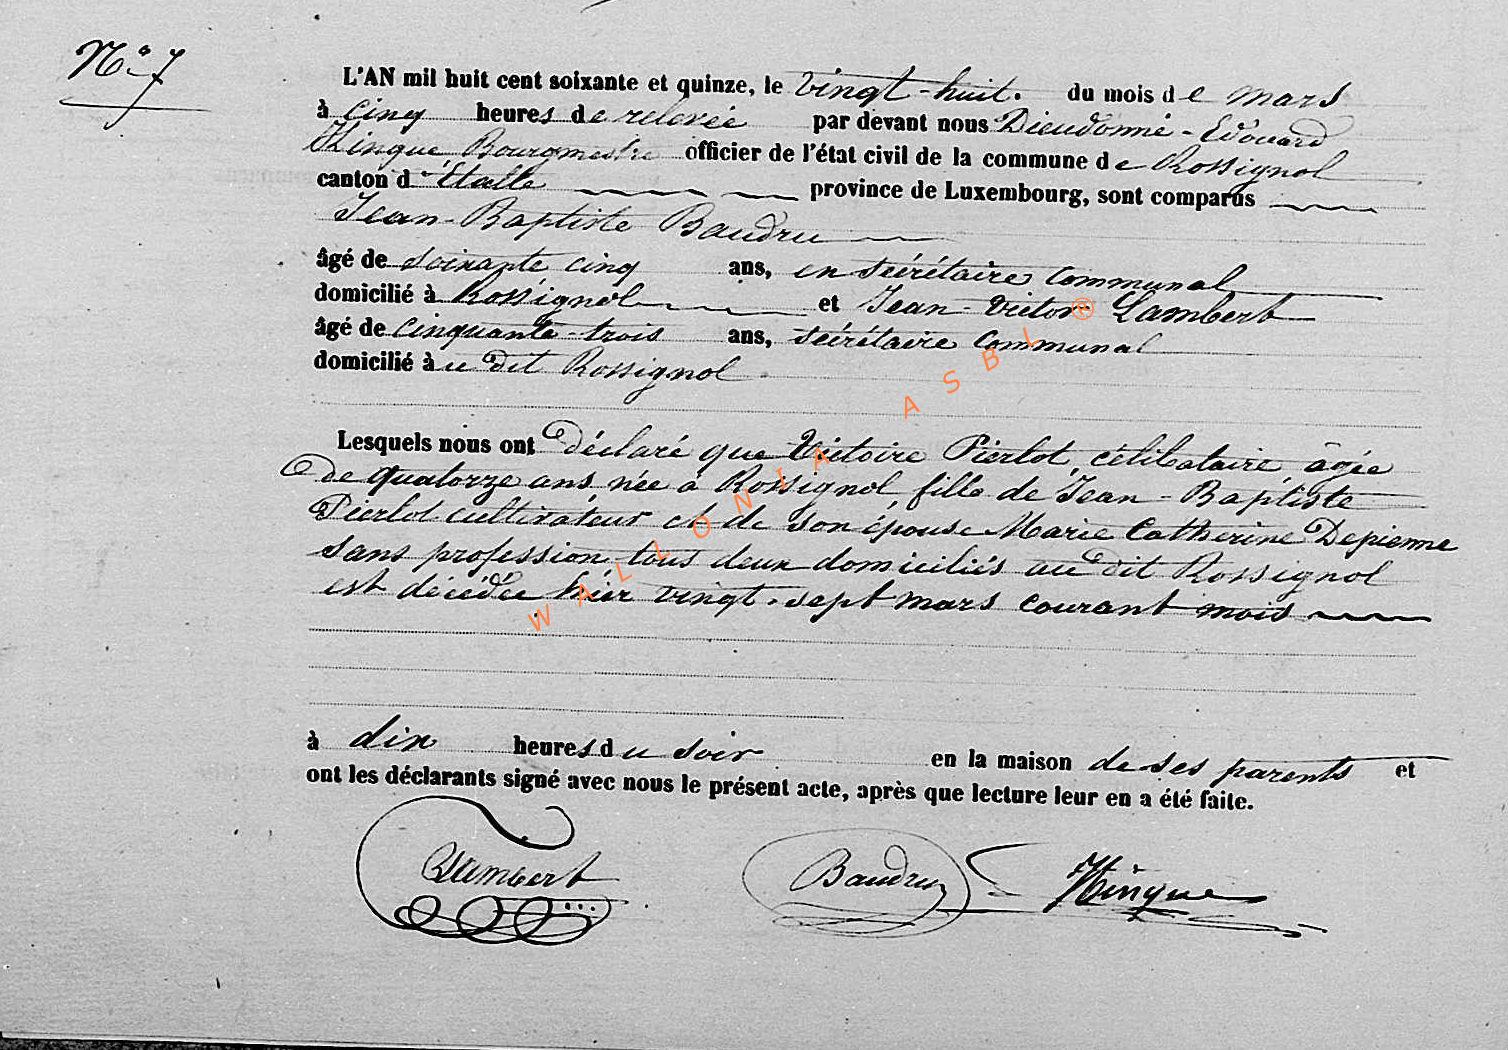 N° 7
L'AN mil huit cent soixante et quinze, le vingt-huit. du mois de mars
à cinq heures de relevée par devant nous Dieudonné-Edouard
Hinque Bourgmestre officier de l'état civil de la commune de Rossignol
canton d'Etalle province de Luxembourg, sont comparus
Jean-Baptiste Baudru
âgé de soixante cinq ans, en secrétaire communal
domicilié à Rossignol et Jean-Victor Lambert
âgé de cinquante-trois ans, secrétaire communal
domicilié au dit Rossignol
Lesquels nous ont déclaré que Victoire Pierlot, célibataire âgée
de quatorze ans née à Rossignol, fille de Jean-Baptiste
Pierlot cultivateur et de son épouse Marie Catherine Depienne
sans profession tous deux domiciliés au dit Rossignol
est décédée hier vingt-sept mars courant mois
à dix heures du soir en la maison de ses parents et
ont les déclarants signé avec nous le présent acte, après que lecture leur en a été faite.
Lambert Baudru Hinque
WALLONIA ASBL ®